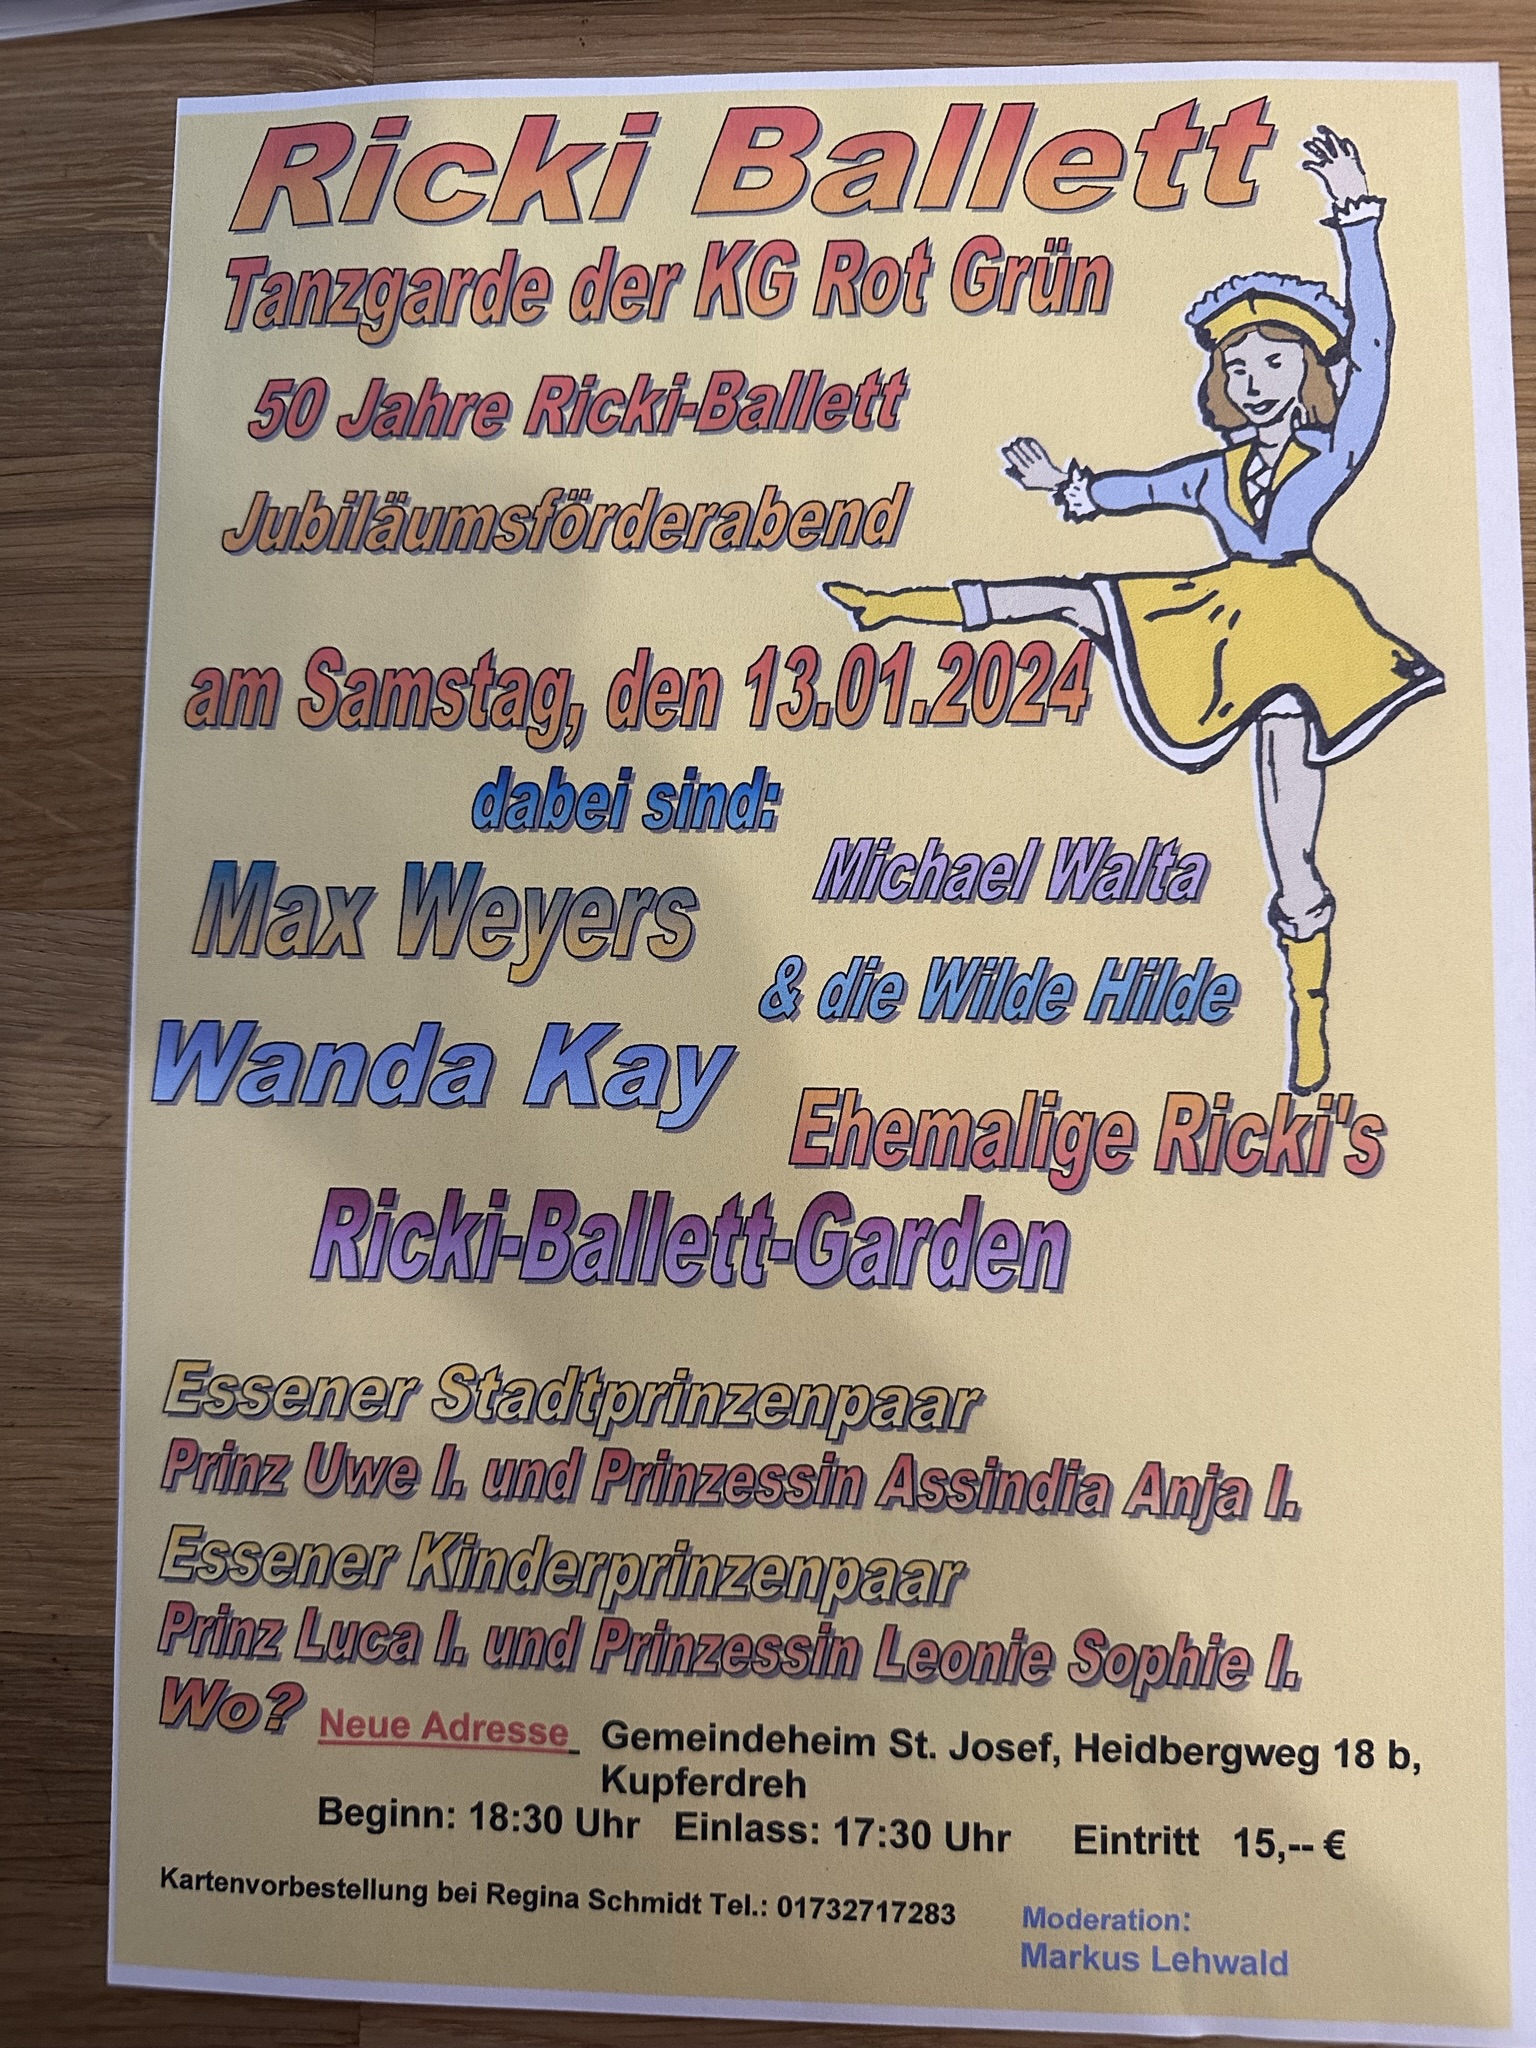 Ricki Ballett
Tanzgarde der KG Rot Grün
50 Jahre Ricki-Ballett
Jubiläumsförderabend
am Samstag, den 13.01.2024
dabei sind:
Max Weyers
Michael Walta
& die Wilde Hilde
Wanda Kay
Ehemalige Ricki's
Ricki-Ballett-Garden
Essener Stadtprinzenpaar
Prinz Uwe I. und Prinzessin Assindia Anja I.
Essener Kinderprinzenpaar
Prinz Luca I. und Prinzessin Leonie Sophie I.
Wo? Neue Adresse Gemeindeheim St. Josef, Heidbergweg 18 b,
Kupferdreh
Beginn: 18:30 Uhr Einlass: 17:30 Uhr Eintritt 15,-- €
Kartenvorbestellung bei Regina Schmidt Tel.: 01732717283
Moderation:
Markus Lehwald